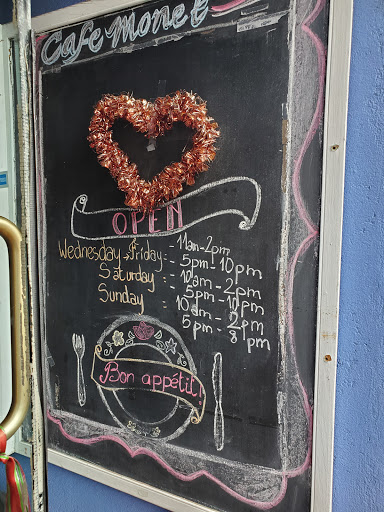 Cafe Monet
OPEN
Wednesday → Friday :- 11am-2pm
- 5pm-10pm
Saturday :- 10am - 2pm
5pm - 10pm
Sunday :- 10am - 2pm
5pm - 8pm
Bon appétit!